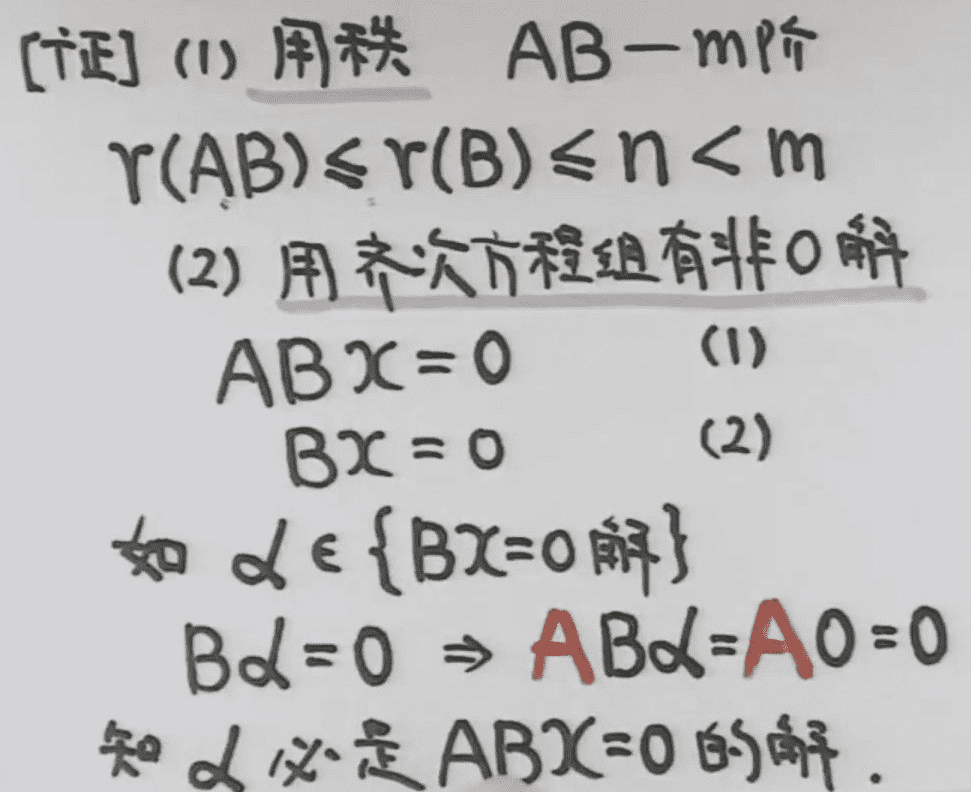 [证] (1) 用秩 AB—m阶
r(AB)≤r(B)≤n<m
(2) 用齐次方程组有非0解
ABx=0 (1)
Bx=0 (2)
如 α∈{Bx=0解}
Bα=0 ⇒ ABα=A0=0
知 α 必是 ABX=0 的解.